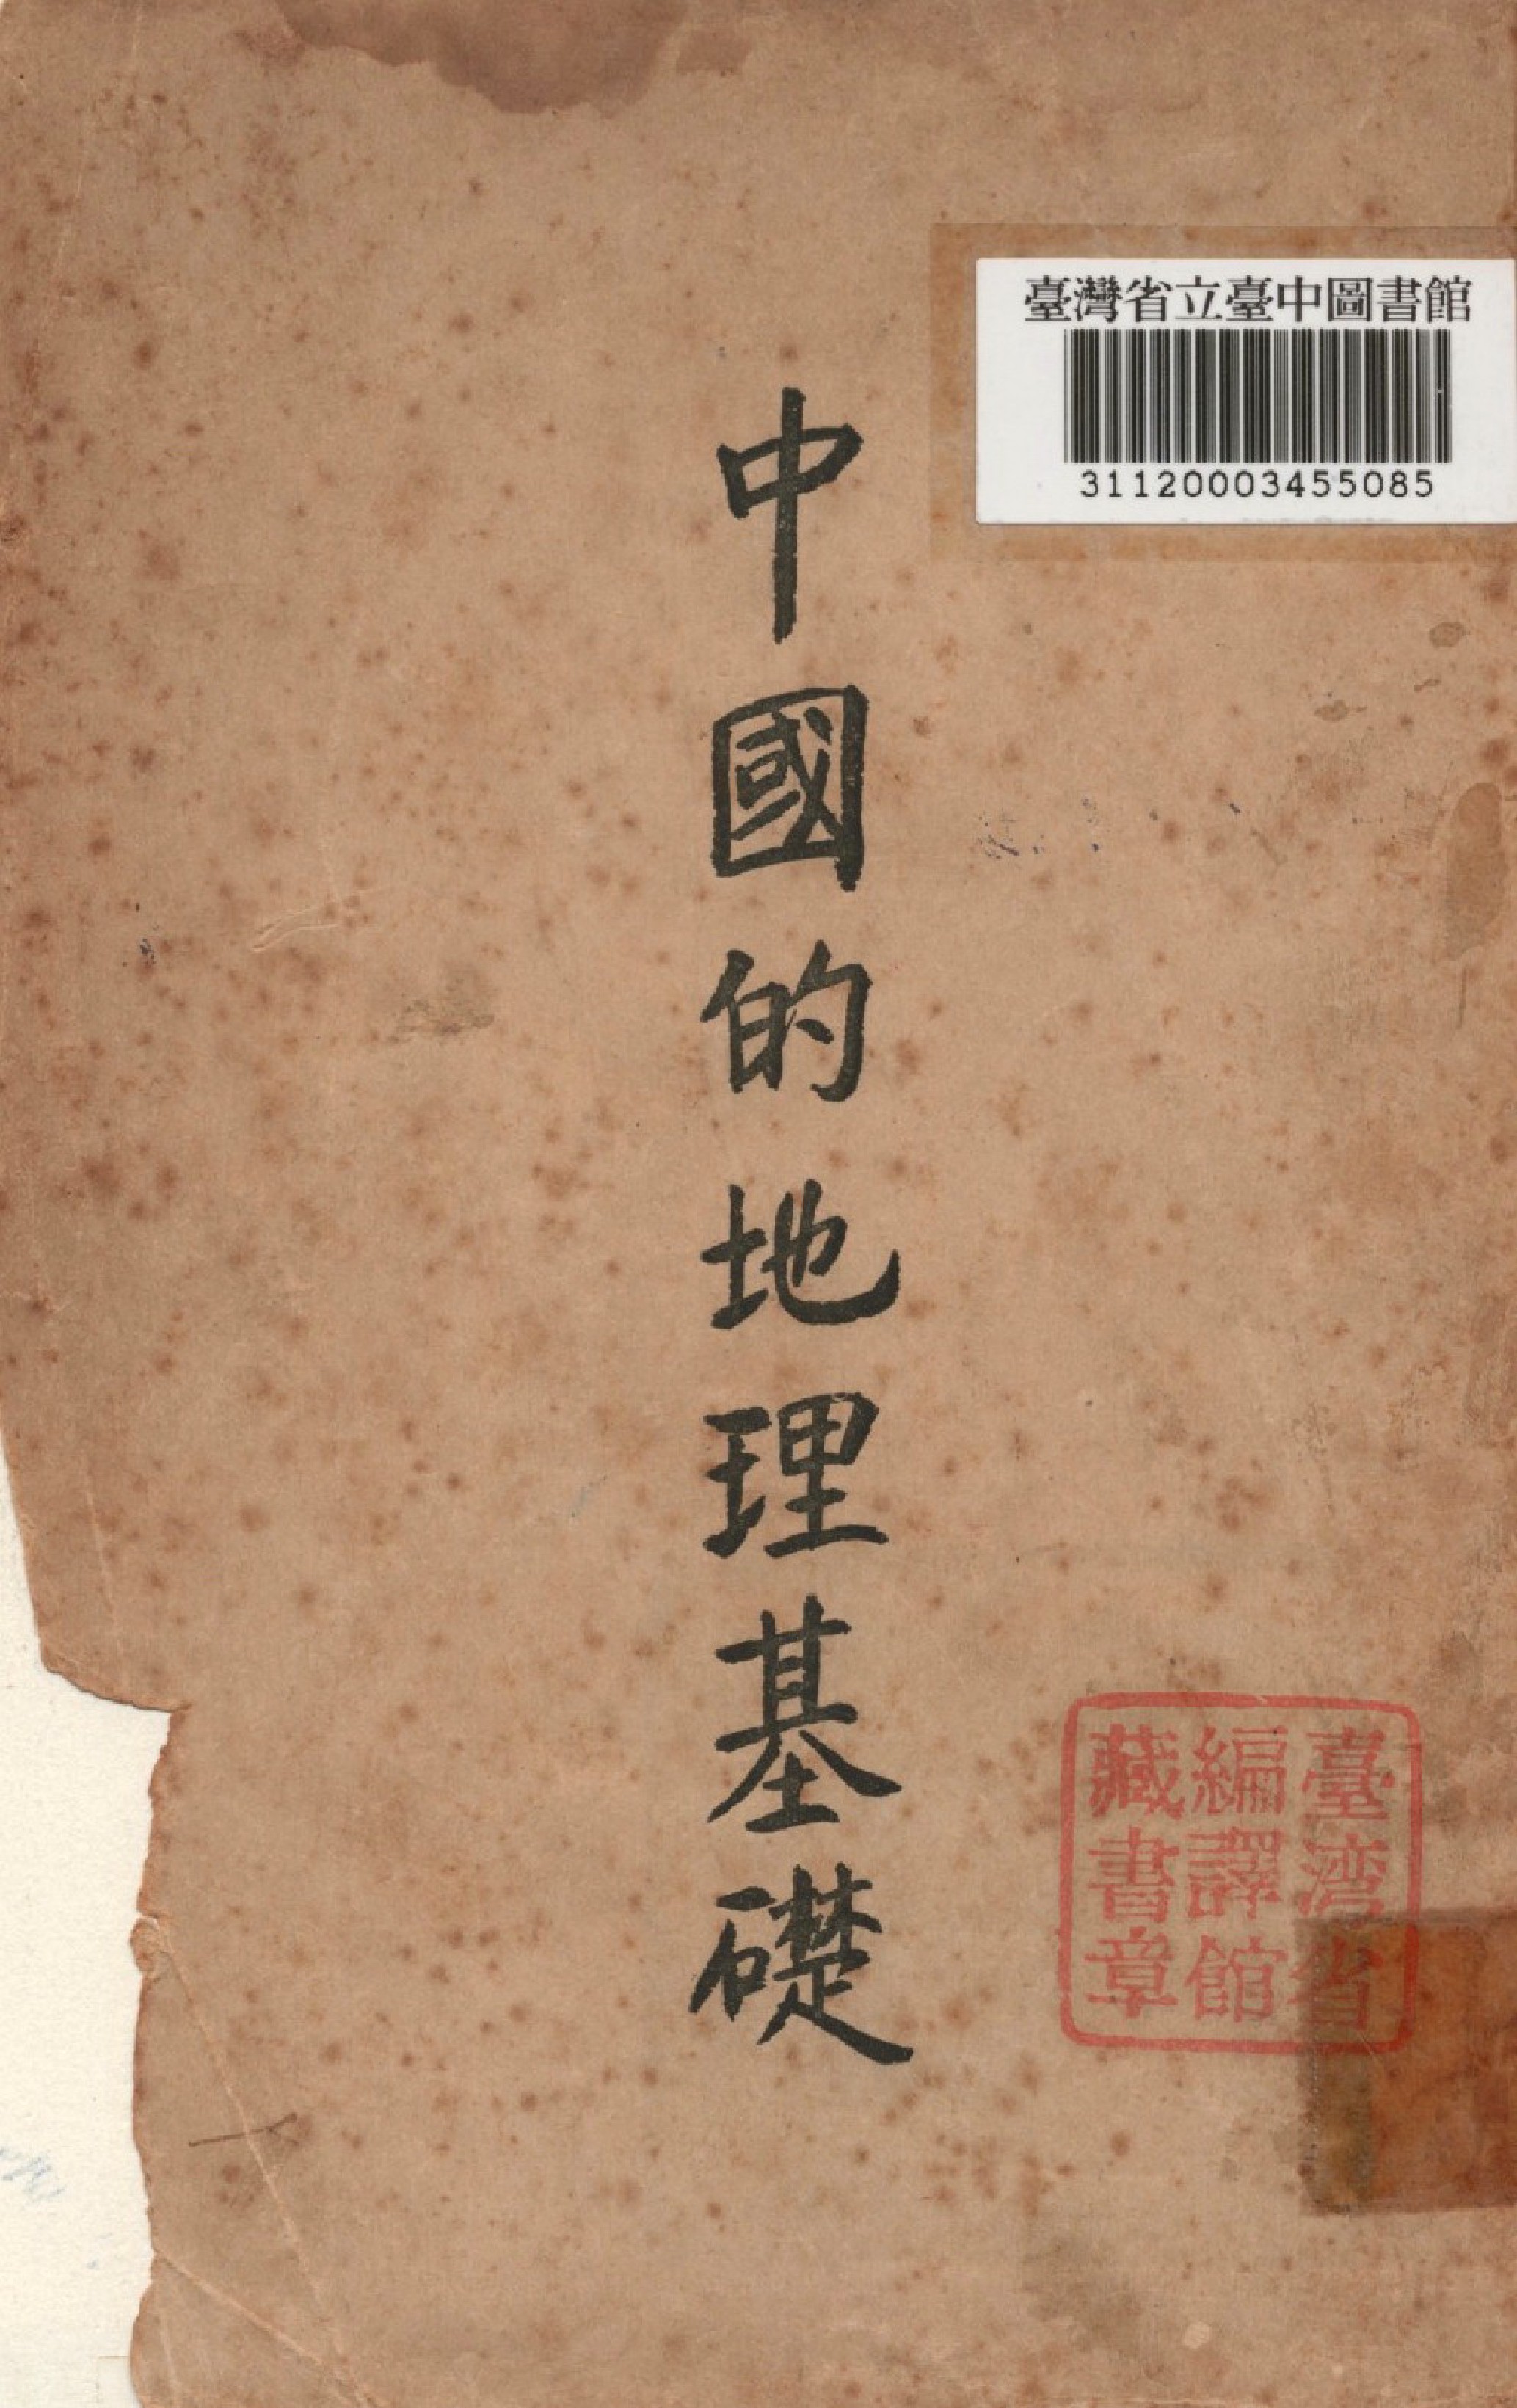 臺灣省立臺中圖書館
31120003455085
中國的地理基礎
臺湾省
編譯館
藏書章